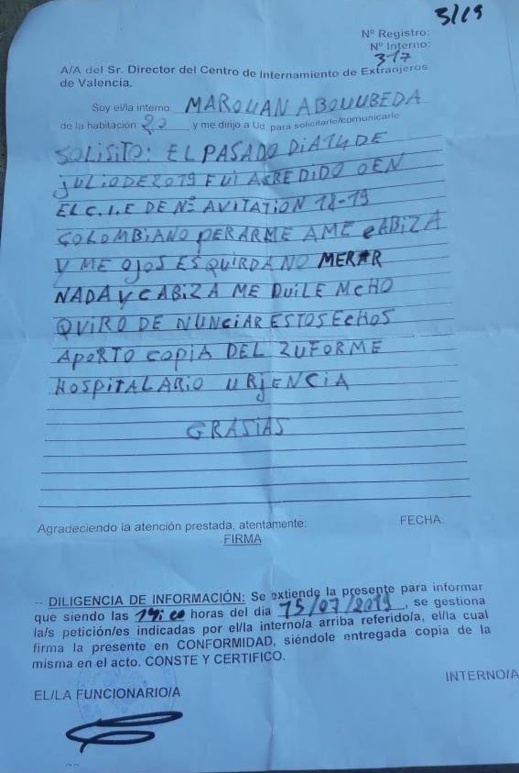 3119
Nº Registro:
Nº Interno:
317
A/A del Sr. Director del Centro de Internamiento de Extranjeros
de Valencia.
Soy el/la interno. MAROUAN ABOUUBEDA
de la habitación 20 y me dirijo a Ud. para solicitarle/comunicarle
SOLISITO: EL PASADO DIA 14 DE
JULIO DE 2019 FUI AGREDIDO OEN
EL C.I.E DE Nº AVITATION 18-19
COLOMBIANO PERARME AME CABIZA
Y ME OJOS ESQUIRDA NO MERAR
NADA Y CABIZA ME DUILE MCHO
QUIRO DENUNCIAR ESTOS ECHOS
APORTO COPIA DEL ZUFORME
HOSPITALARIO URJENCIA
GRASIAS
Agradeciendo la atención prestada, atentamente: FECHA:
FIRMA
-- DILIGENCIA DE INFORMACIÓN: Se extiende la presente para informar
que siendo las horas del día 15/07/2019, se gestiona
la/s petición/es indicadas por el/la interno/a arriba referido/a, el/la cual
firma la presente en CONFORMIDAD, siéndole entregada copia de la
misma en el acto. CONSTE Y CERTIFICO.
INTERNO/A
EL/LA FUNCIONARIO/A